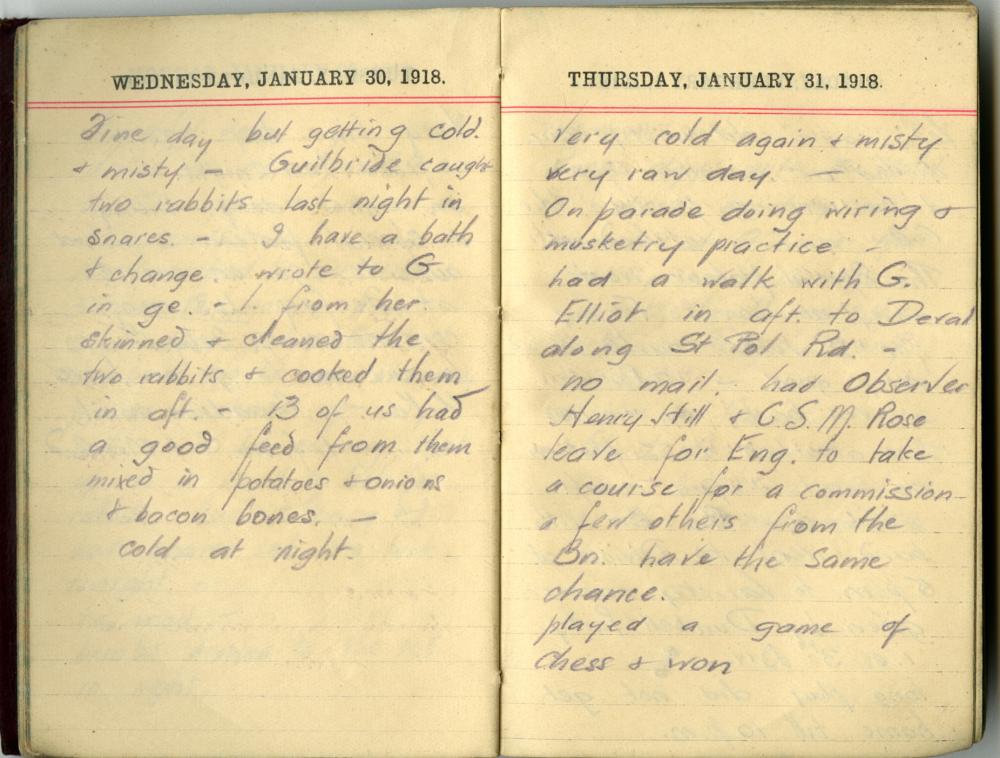 WEDNESDAY, JANUARY 30, 1918.
Fine day but getting cold.
& misty. – Guilbride caught
two rabbits last night in
snares. – I have a bath
& change. wrote to G
in ge. – 1 from her
skinned & cleaned the
two rabbits & cooked them
in aft. – 13 of us had
a good feed from them
mixed in potatoes & onions
& bacon bones. –
cold at night.
THURSDAY, JANUARY 31, 1918.
Very cold again & misty
very raw day. –
On parade doing wiring &
musketry practice. –
had a walk with G.
Elliot in aft. to Deval
along St Pol Rd. –
no mail. had Observer
Henry Hill & C.S.M. Rose
leave for Eng. to take
a course for a commission –
a few others from the
Bn. have the same
chance.
played a game of
chess & won